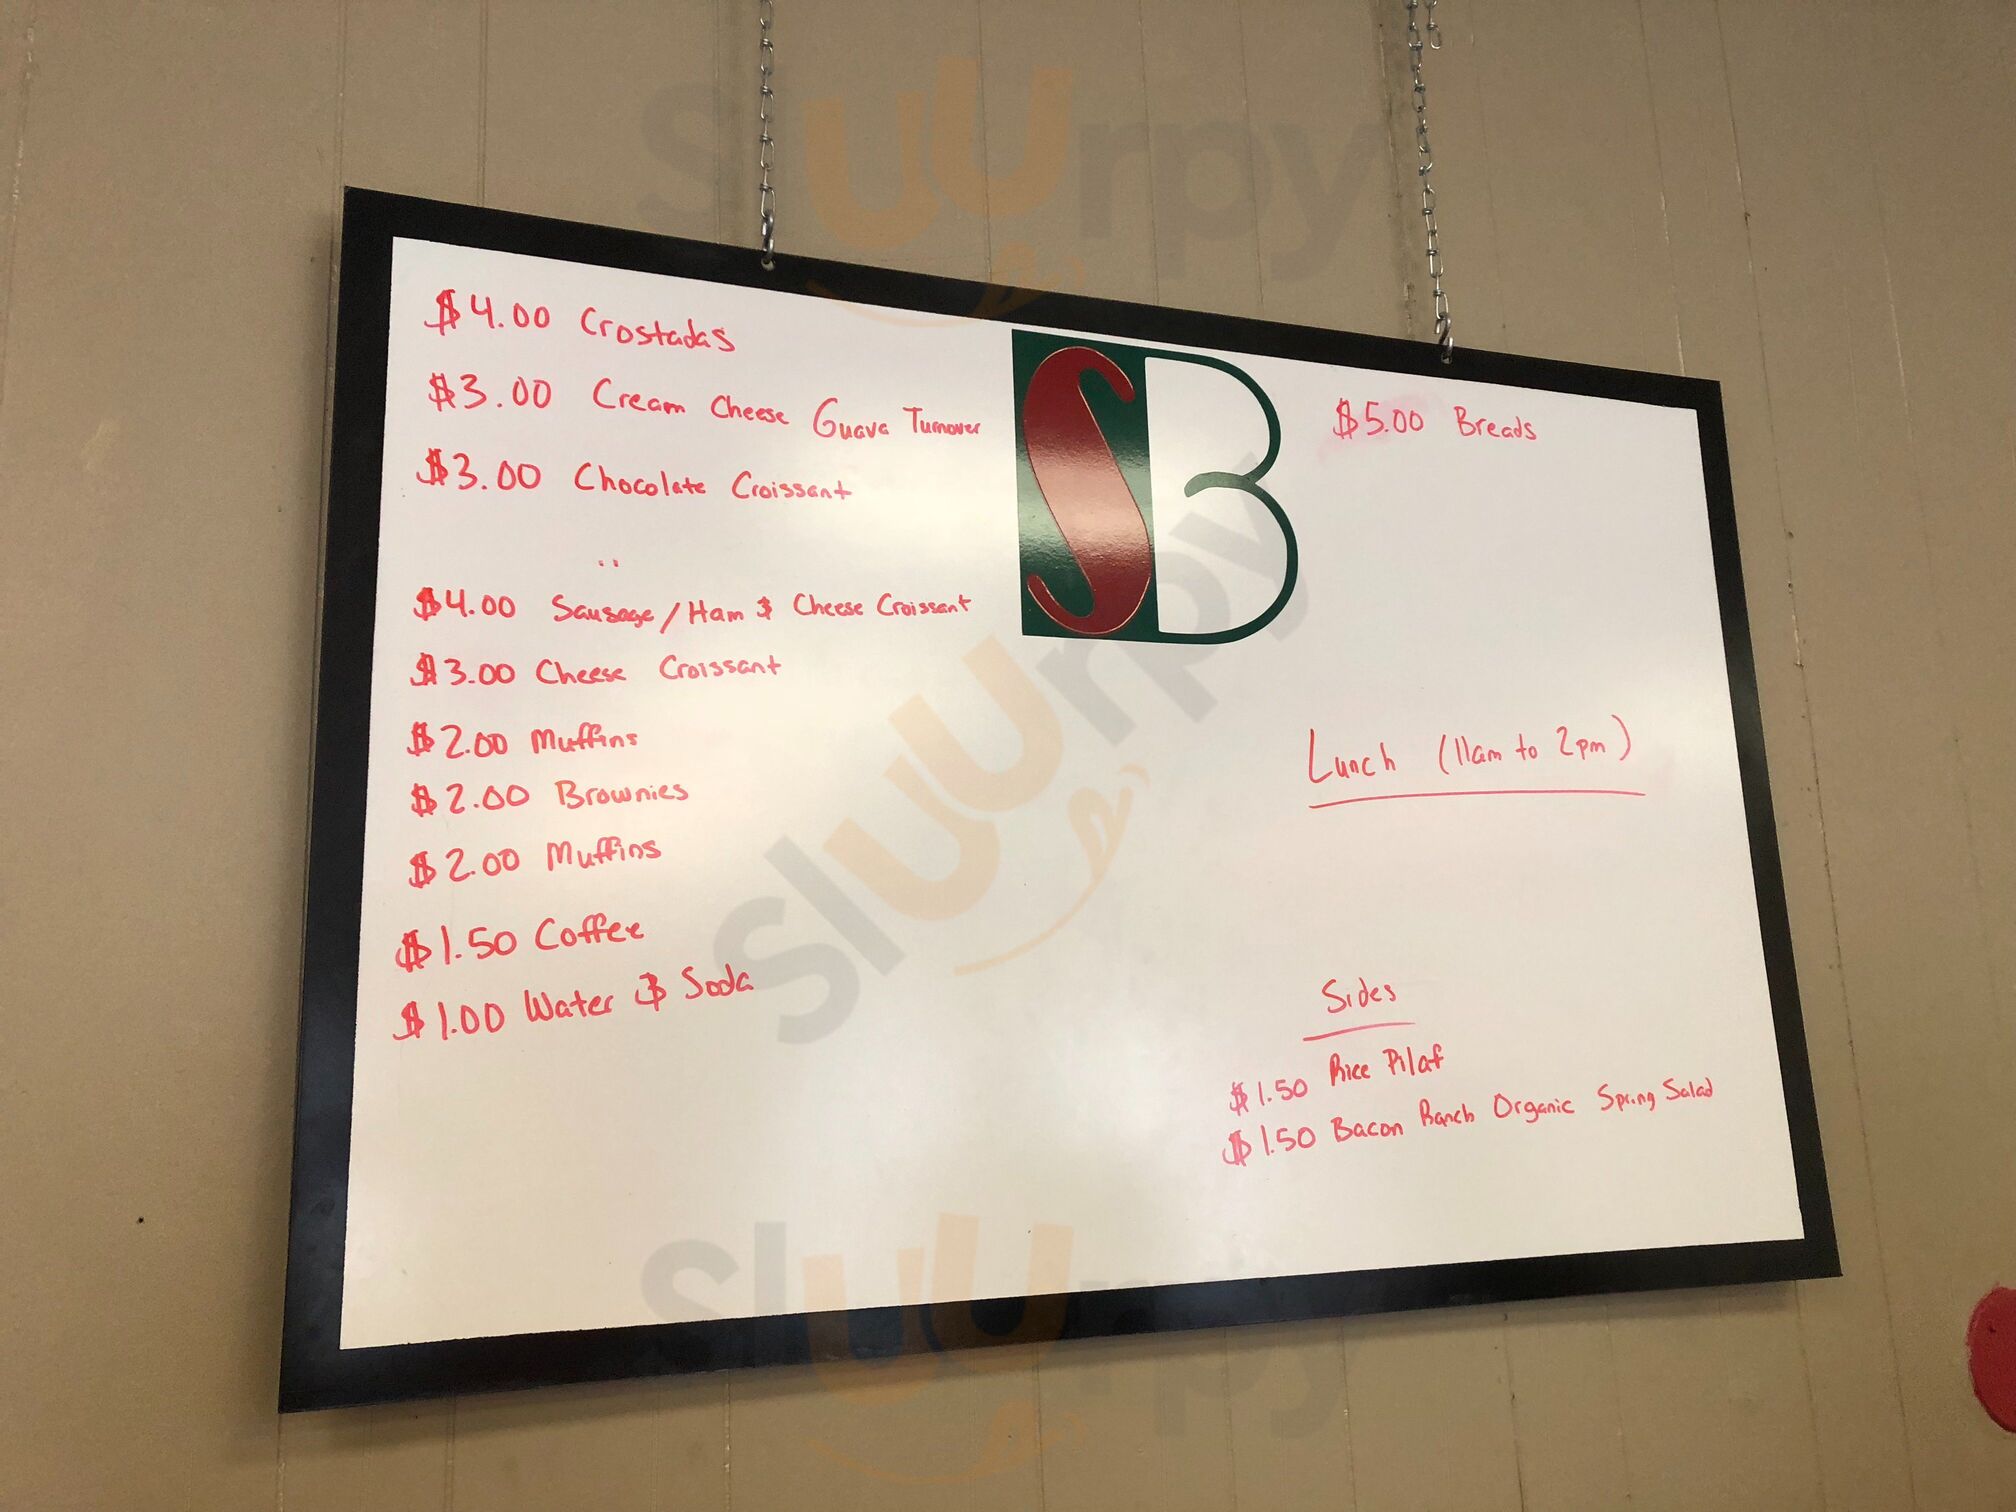 $4.00 Crostadas
$3.00 Cream Cheese Guava Turnover
$3.00 Chocolate Croissant
$4.00 Sausage/Ham & Cheese Croissant
$3.00 Cheese Croissant
$2.00 Muffins
$2.00 Brownies
$2.00 Muffins
$1.50 Coffee
$1.00 Water & Soda
SB
$5.00 Breads
Lunch (11am to 2pm)
Sides
$1.50 Rice Pilaf
$1.50 Bacon Ranch Organic Spring Salad
sluurpy
sluurpy
sluurpy